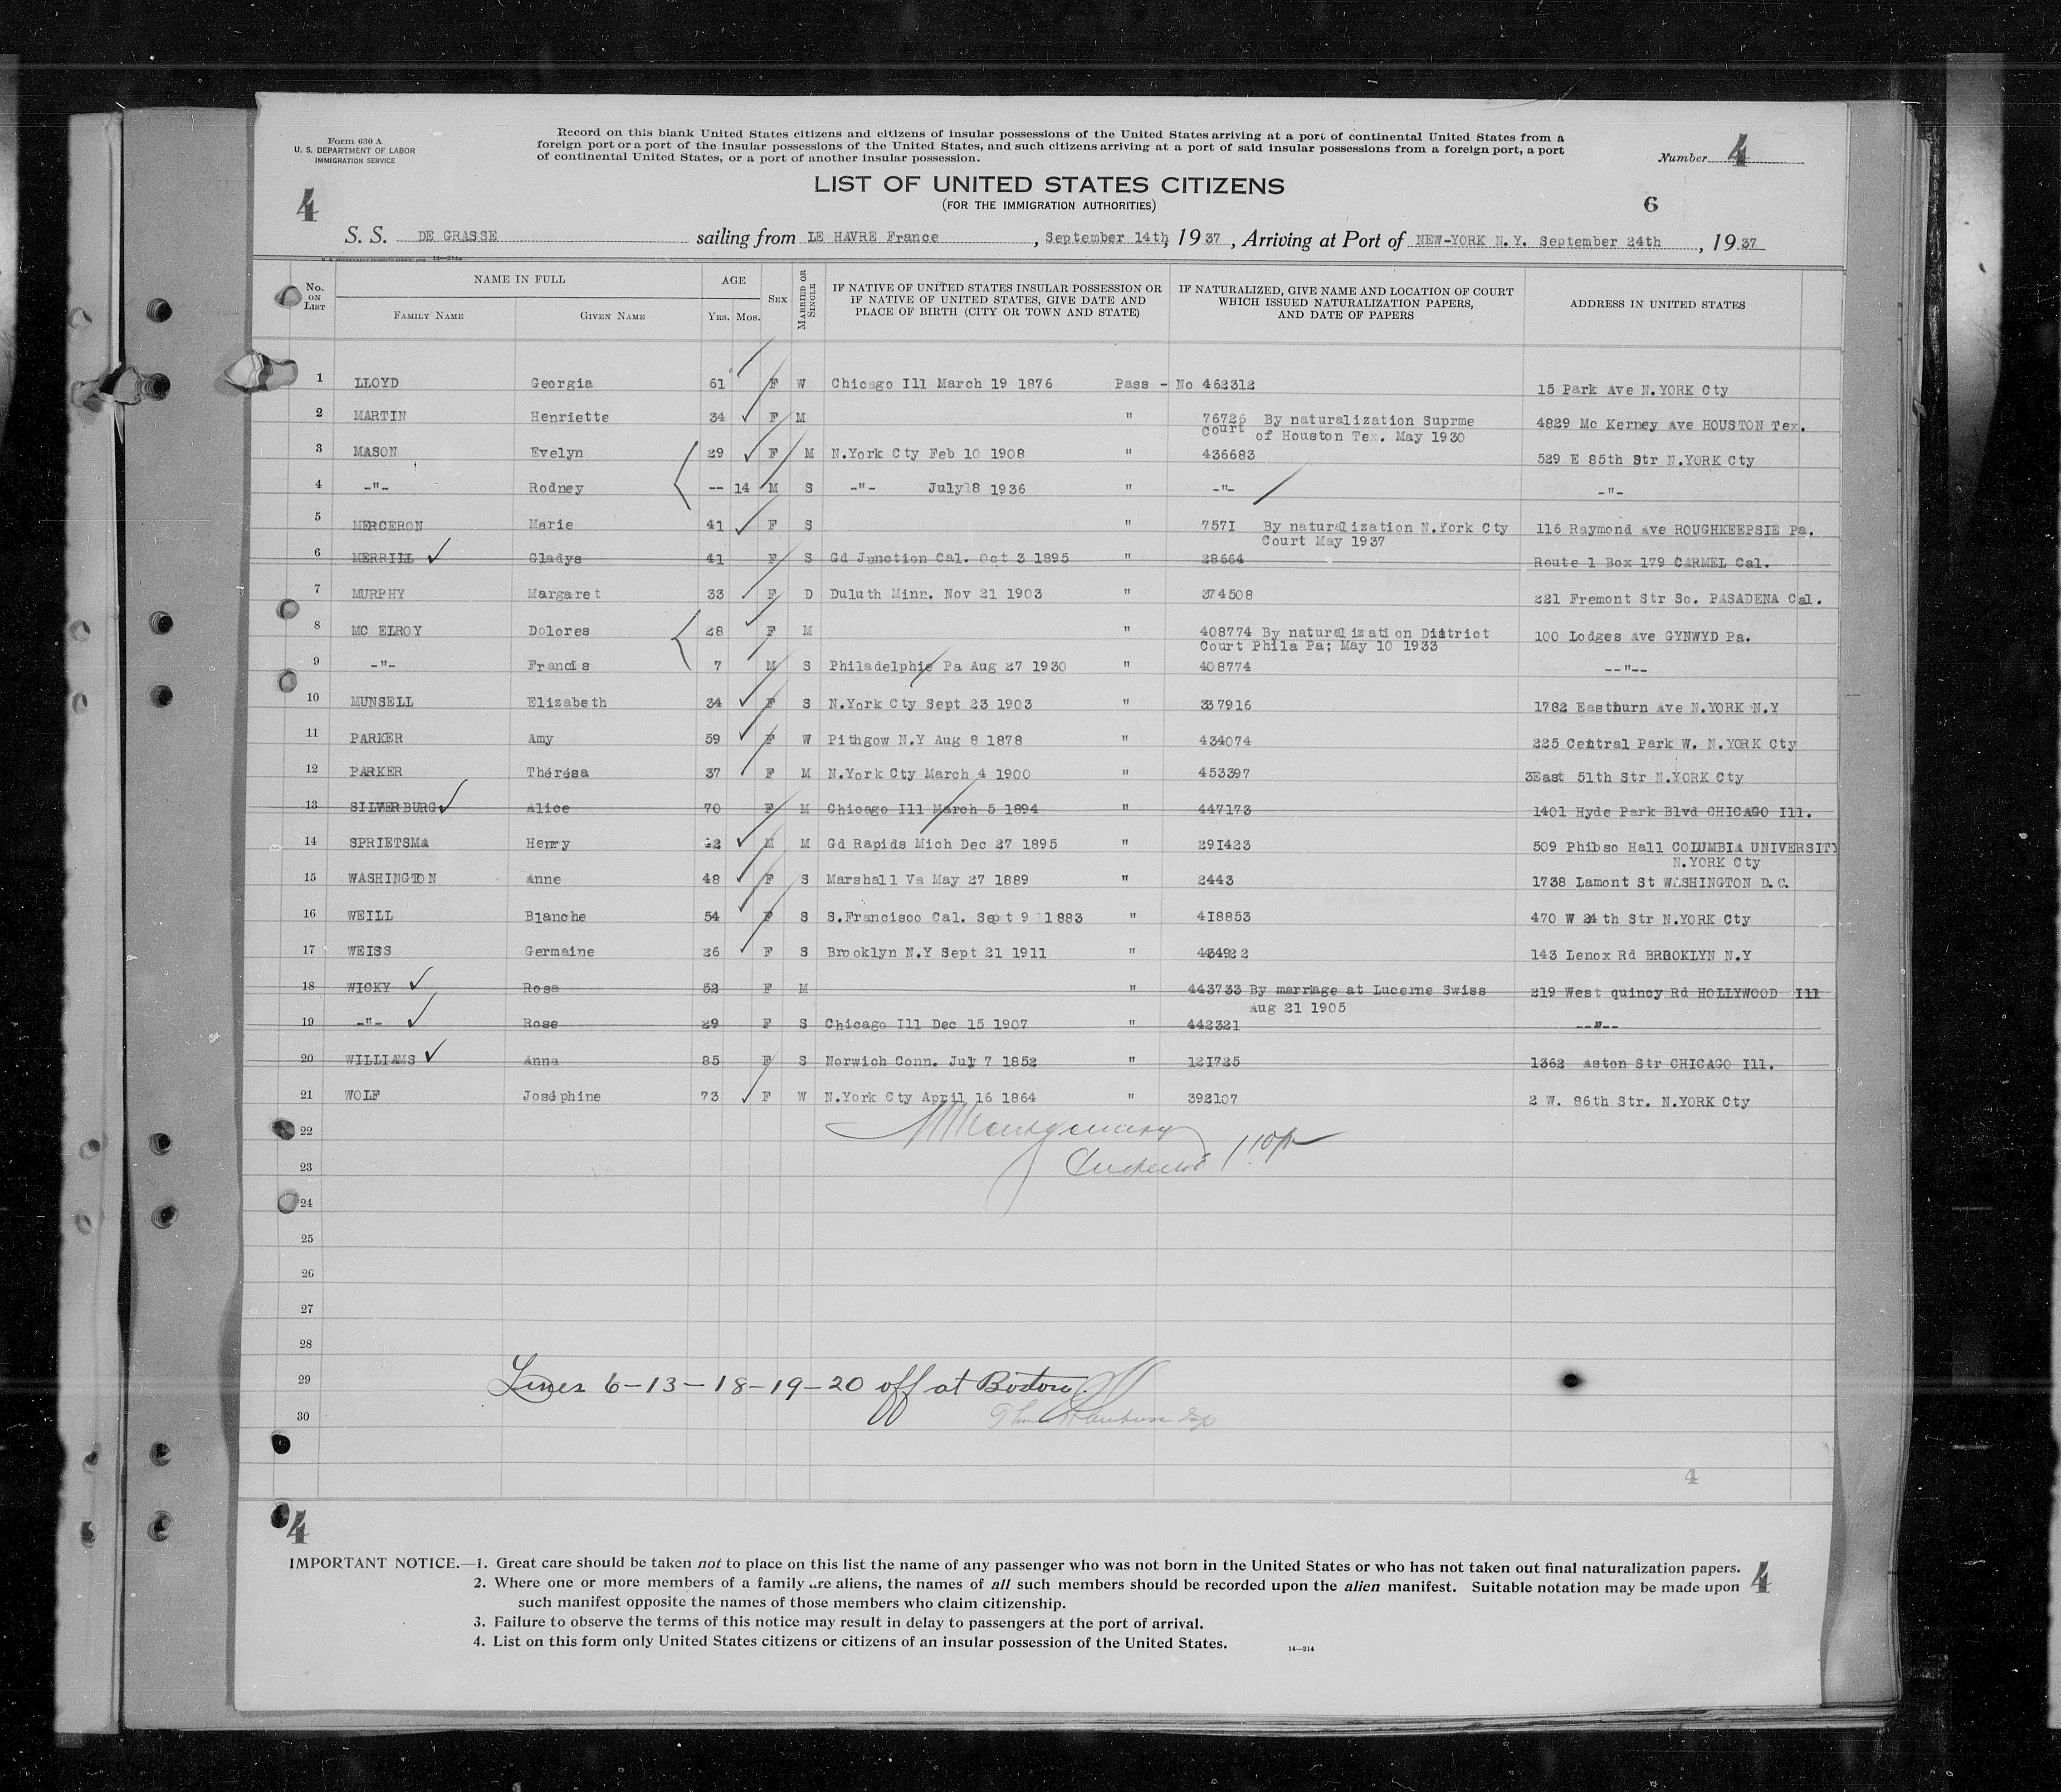 Form 630 A
U. S. DEPARTMENT OF LABOR
IMMIGRATION SERVICE
Record on this blank United States citizens and citizens of insular possessions of the United States arriving at a port of continental United States from a
foreign port or a port of the insular possessions of the United States, and such citizens arriving at a port of said insular possessions from a foreign port, a port
of continental United States, or a port of another insular possession.
Number 4
LIST OF UNITED STATES CITIZENS
(FOR THE IMMIGRATION AUTHORITIES)
4
6
S. S. DE GRASSE sailing from LE HAVRE France, September 14th, 1937, Arriving at Port of NEW-YORK N.Y. September 24th, 1937
No. ON LIST
NAME IN FULL
FAMILY NAME
GIVEN NAME
AGE
YRS. MOS.
SEX
MARRIED OR SINGLE
IF NATIVE OF UNITED STATES INSULAR POSSESSION OR
IF NATIVE OF UNITED STATES, GIVE DATE AND
PLACE OF BIRTH (CITY OR TOWN AND STATE)
IF NATURALIZED, GIVE NAME AND LOCATION OF COURT
WHICH ISSUED NATURALIZATION PAPERS,
AND DATE OF PAPERS
ADDRESS IN UNITED STATES
1 LLOYD Georgia 61 F W Chicago Ill March 19 1876 Pass - No 462312 15 Park Ave N.YORK Cty
2 MARTIN Henriette 34 F M " 76726 By naturalization Suprme 4829 Mc Kerney Ave HOUSTON Tex.
Court of Houston Tex. May 1930
3 MASON Evelyn 29 F M N.York Cty Feb 10 1908 " 436683 529 E 85th Str N.YORK Cty
4 -"- Rodney -- 14 M S -"- July 18 1936 " -"- -"-
5 MERCERON Marie 41 F S " 757I By naturalization N.York Cty 116 Raymond Ave ROUGHKEEPSIE Pa.
Court May 1937
6 MERRILL Gladys 41 F S Gd Junction Cal. Oct 3 1895 " 28664 Route 1 Box 179 CARMEL Cal.
7 MURPHY Margaret 33 F D Duluth Minn. Nov 21 1903 " 374508 221 Fremont Str So. PASADENA Cal.
8 MC ELROY Dolores 28 F M " 408774 By naturalization District 100 Lodges Ave GYNWYD Pa.
Court Phila Pa; May 10 1933
9 -"- Francis 7 M S Philadelphie Pa Aug 27 1930 " 408774 --"--
10 MUNSELL Elizabeth 34 F S N.York Cty Sept 23 1903 " 337916 1782 Eastburn Ave N.YORK N.Y
11 PARKER Amy 59 F W Pithgow N.Y Aug 8 1878 " 434074 225 Central Park W. N.YORK Cty
12 PARKER Thérésa 37 F M N.York Cty March 4 1900 " 453397 3East 51th Str N.YORK Cty
13 SILVERBURG Alice 70 F M Chicago Ill March 5 1894 " 447173 1401 Hyde Park Blvd CHICAGO Ill.
14 SPRIETSMA Henry M M Gd Rapids Mich Dec 27 1895 " 291423 509 Phibso Hall COLUMBIA UNIVERSITY
N.YORK Cty
15 WASHINGTON Anne 48 F S Marshall Va May 27 1889 " 2443 1738 Lamont St WASHINGTON D.C.
16 WEILL Blanche 54 F S S.Francisco Cal. Sept 9 1883 " 418853 470 W 24th Str N.YORK Cty
17 WEISS Germaine 26 F S Brooklyn N.Y Sept 21 1911 " 434922 143 Lenox Rd BROOKLYN N.Y
18 WICKY Rosa 52 F M " 443733 By marriage at Lucerne Swiss 219 West quincy Rd HOLLYWOOD Ill
Aug 21 1905
19 -"- Rose 29 F S Chicago Ill Dec 15 1907 " 442321 --"--
20 WILLIAMS Anna 85 F S Norwich Conn. July 7 1852 " 121725 1362 Aston Str CHICAGO Ill.
21 WOLF Joséphine 73 F W N.York Cty April 16 1864 " 392107 2 W. 86th Str. N.YORK Cty
22 Montgomery
23 Inspector
24
25
26
27
28
29 Lines 6-13-18-19-20 off at Boston.
30
4
4
IMPORTANT NOTICE.—1. Great care should be taken not to place on this list the name of any passenger who was not born in the United States or who has not taken out final naturalization papers.
2. Where one or more members of a family are aliens, the names of all such members should be recorded upon the alien manifest. Suitable notation may be made upon
such manifest opposite the names of those members who claim citizenship.
4
3. Failure to observe the terms of this notice may result in delay to passengers at the port of arrival.
4. List on this form only United States citizens or citizens of an insular possession of the United States.
14—214